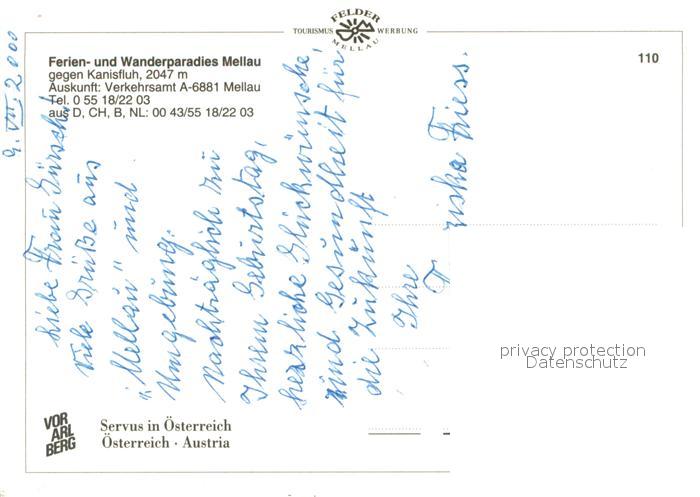 FELDER
TOURISMUS WERBUNG
MELLAU
Ferien- und Wanderparadies Mellau
gegen Kanisfluh, 2047 m
Auskunft: Verkehrsamt A-6881 Mellau
Tel. 0 55 18/22 03
aus D, CH, B, NL: 00 43/55 18/22 03
110
9. VII. 2000
Liebe Frau
viele Grüße aus
"Mellau" und
Umgebung.
Nachträglich zu
Ihrem Geburtstag,
herzliche Glückwünsche,
und Gesundheit für
die Zukunft
Ihre
ziska Friess.
privacy protection
Datenschutz
VOR
ARL
BERG
Servus in Österreich
Österreich · Austria